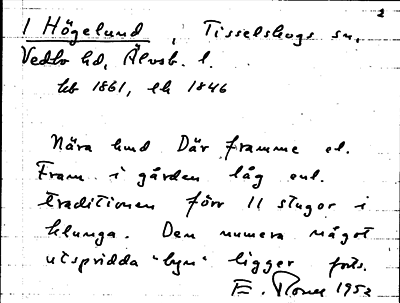 2
1 Högelund, Tisselskogs sn,
Vedbo hd, Älvsb. l.
hb 1861, ek 1846
Nära hmd Där framme el.
Fram i gården låg enl.
traditionen förr 11 stugor i
klunga. Den numera något
utspridda "byn" ligger forts.
E. 1952